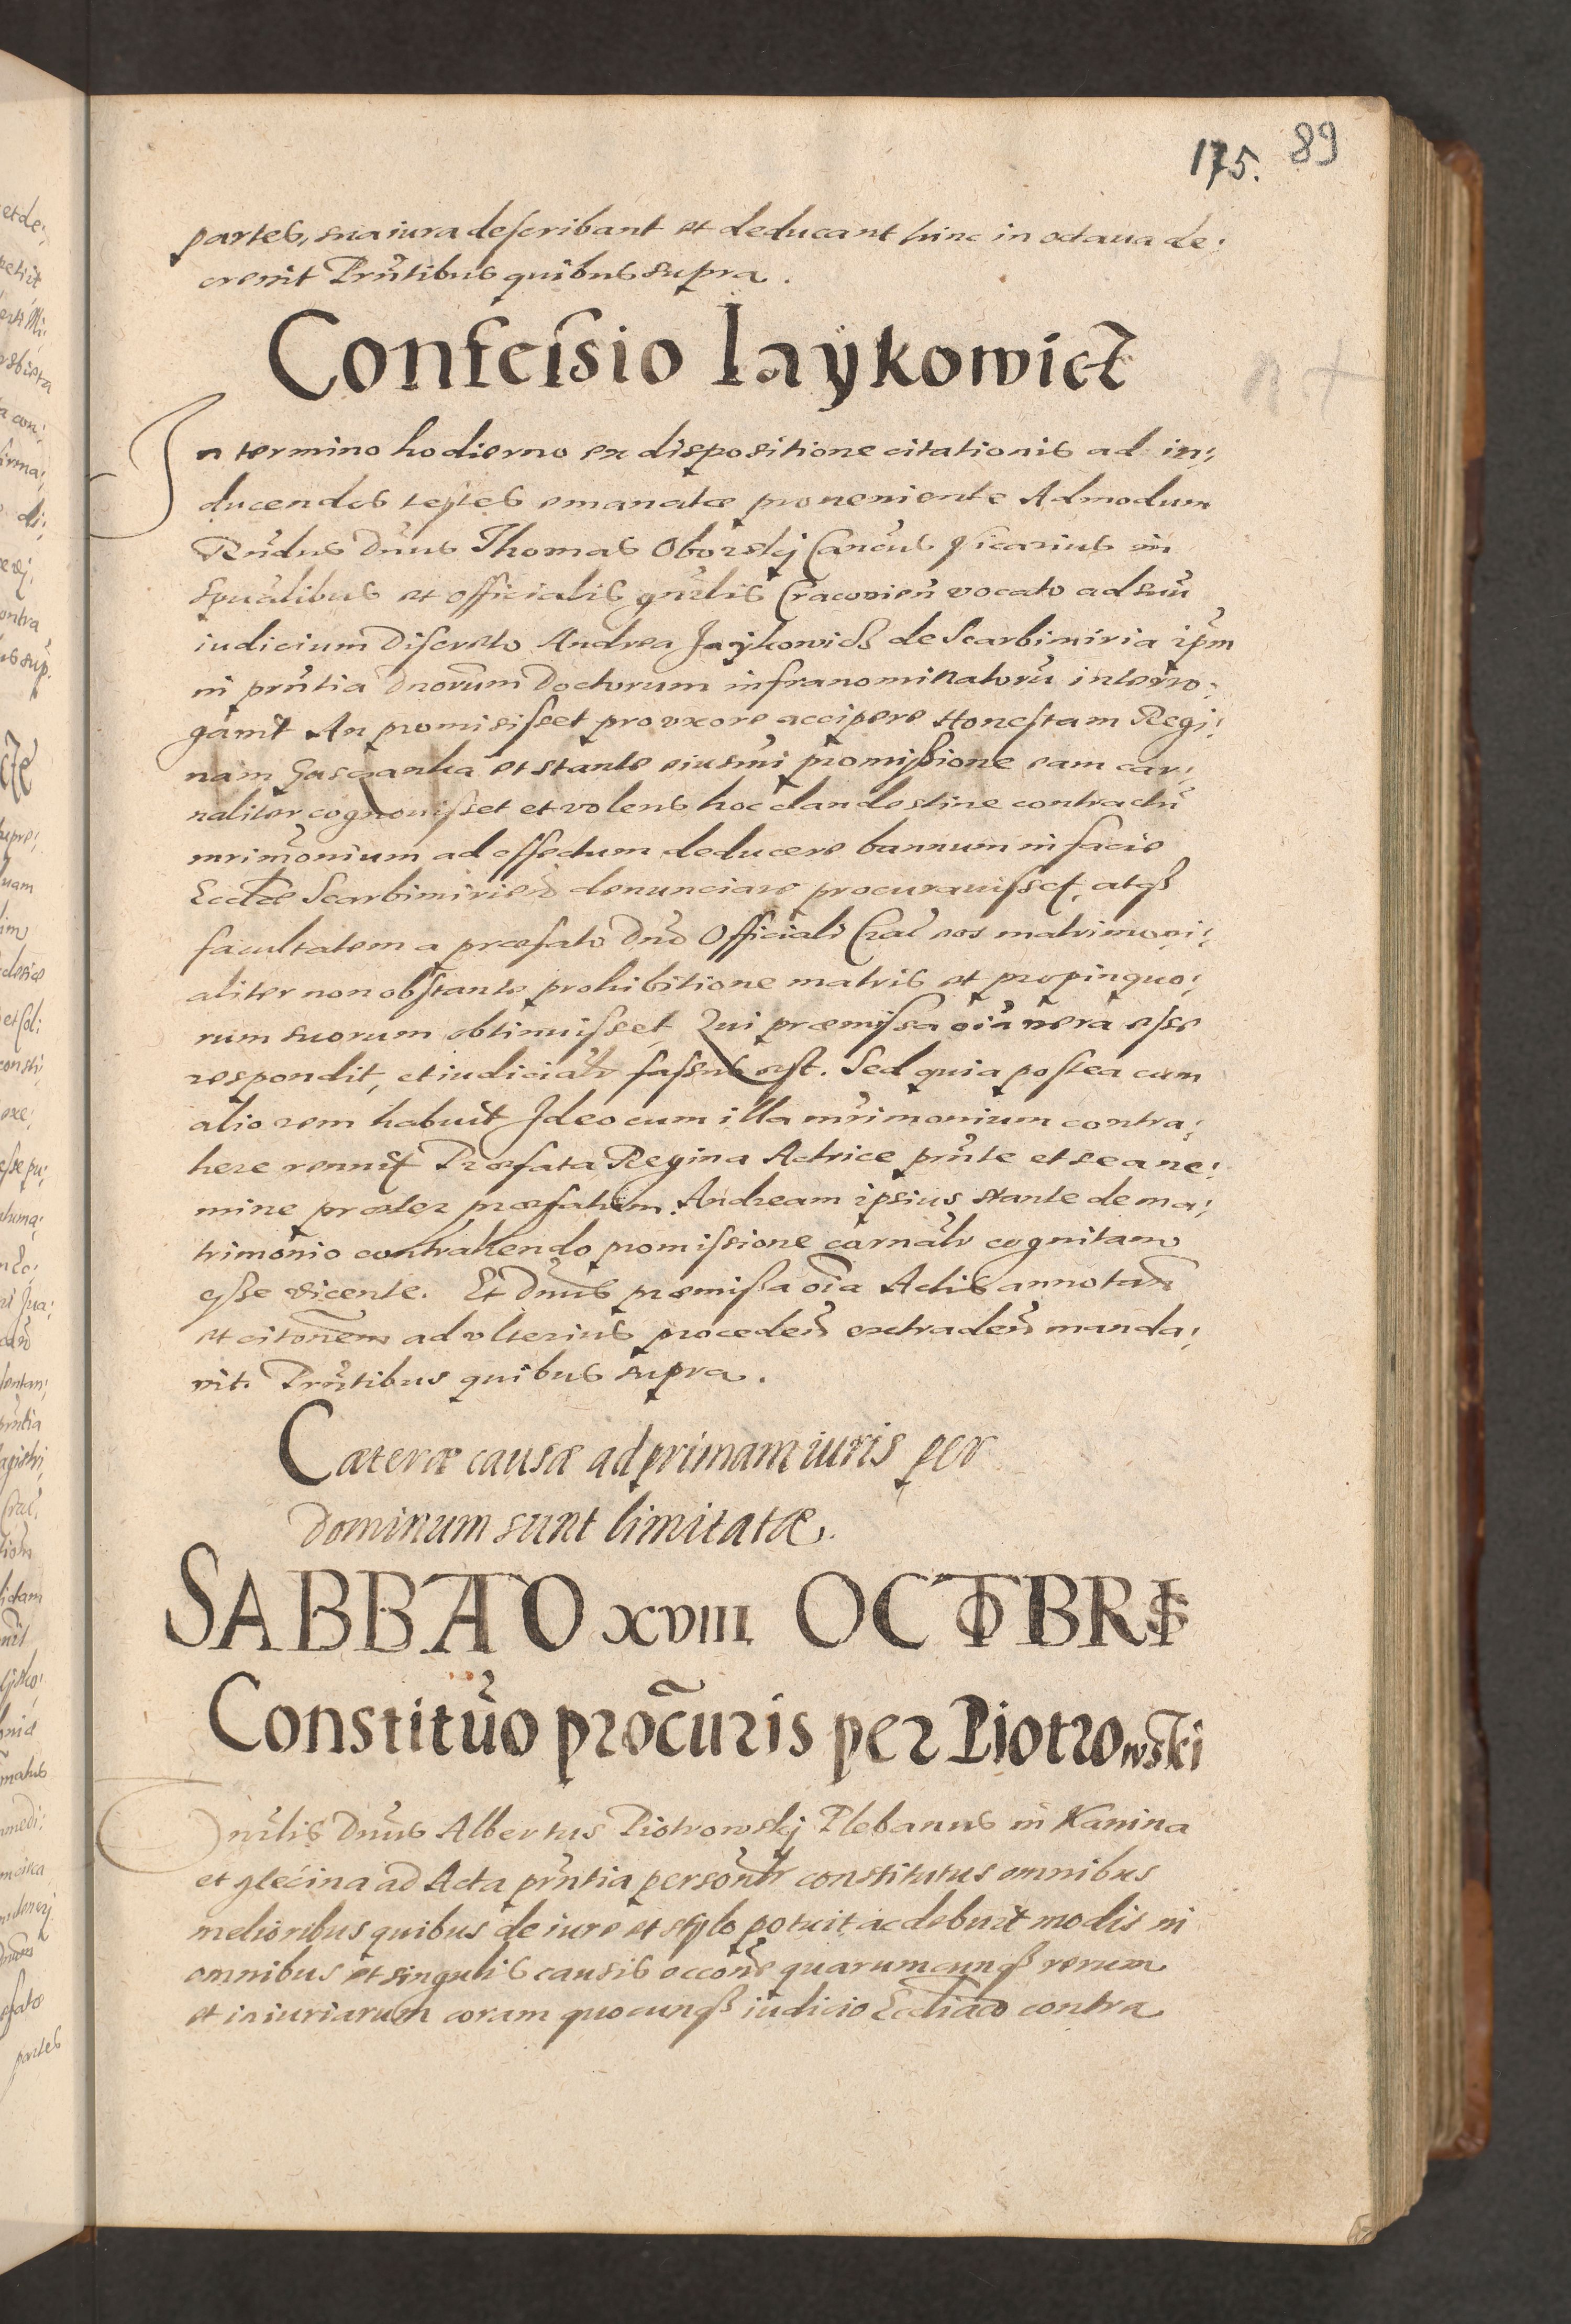 175. 89
partes, sua iura describant et deducant hinc in octaua de:
creuit Prñtibus quibus supra.
Confeisio Iaÿkowicz
In termino hodierno ex dispositione citationis ad in:
ducendos testes emanatæ proueniente Admodum
Rñdus Dñus Thomas Oborskj Cancus Vicarius in
Spüalibus et Officialis gñrlis Cracouieñ vocato ad suũ
iudicium Discreto Andrea Jaÿkowicz de Scarbimiria ip̃m
in prñtia Dnorum Doctorum infranominatorũ interro:
gauit An promisisset pro vxore accipere Honestam Regi:
nam et stante eiusm̃i promissione eam car:
naliter cognouisset et volens hoc clandestine contractũ
mrim̃onium ad effectum deducere bannum in facie
Eccl̃æ Scarbimirieñ denunciare procurauisset, atq3
facultatem a præfato Dño Officiali Crac̃ eos matrimoni:
aliter non obstante prohibitione matris et propinquo:
rum suorum obtinuisset, Qui præmissa oĩa uera esse
respondit, et iudicialr̃ fassus est. Sed quia postea cum
alio rem habuit Ideo cum illa mr̃imonium contra:
here rennuit Præfata Regina Actrice prñte et se a ne:
mine præter præfatum Andream ipsius stante de ma:
trimonio contrahendo promissione carnalr̃ cognitam
esse dicente. Et Dñus præmissa oĩa Actis annotarj
et citõnem ad vlterius procedeñ extradeñ manda:
uit. Prñtibus quibus supra.
Cæteræ causæ ad primam iuris per
dominum sunt limitatæ.
SABBATO XVIII OCTOBRIS
Constitũo procũris per Piotrowski
Gñrlis Dñus Albertus Piotrowskj Plebanus in Kanina
et ad Acta prñtia personlr̃ constitutus omnibus
melioribus quibus de iure et stylo potuit ac debuit modis in
omnibus et singulis causis occõne quarumcunq3 rerum
et iniuriarum coram quocunq3 iudicio Eccliãco contra